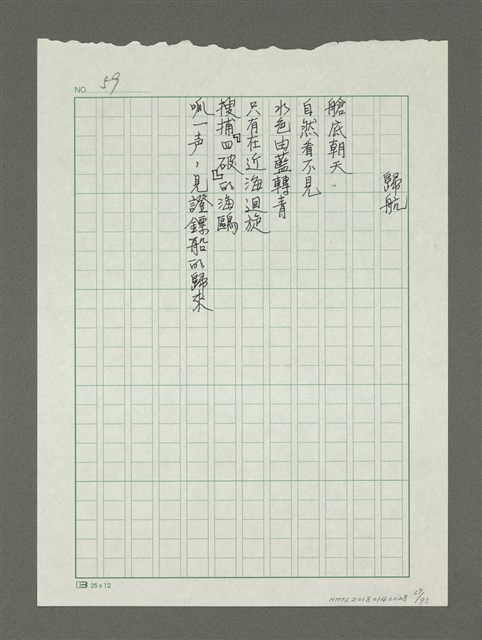 NO. 59
歸航
艙底朝天.
自然看不見
水色由藍轉青
只有在近海迴旋
搜捕『四破』的海鷗
呱一声，見證鏢船的歸來
25 x 12
NMTL20180140028 59/93